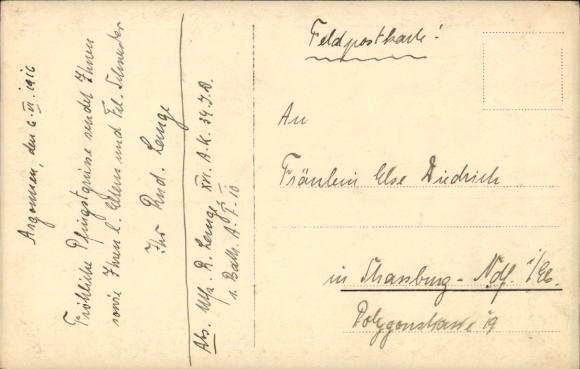 Argonnen, den 6. VI. 1916
Fröhliche Pfingstgrüsse sendet Ihnen
sowie Ihren l. Eltern und Frl. Schneider
Ihr Rud. Lange
Abs. Uffz. R. Lange XVI. A.K. 34. I.D.
1. Battr. A. F. 10
Feldpostkarte!
An
Fräulein Else Diedrich
in Strassburg - Ndf. i/Els.
Polygonstrasse 19